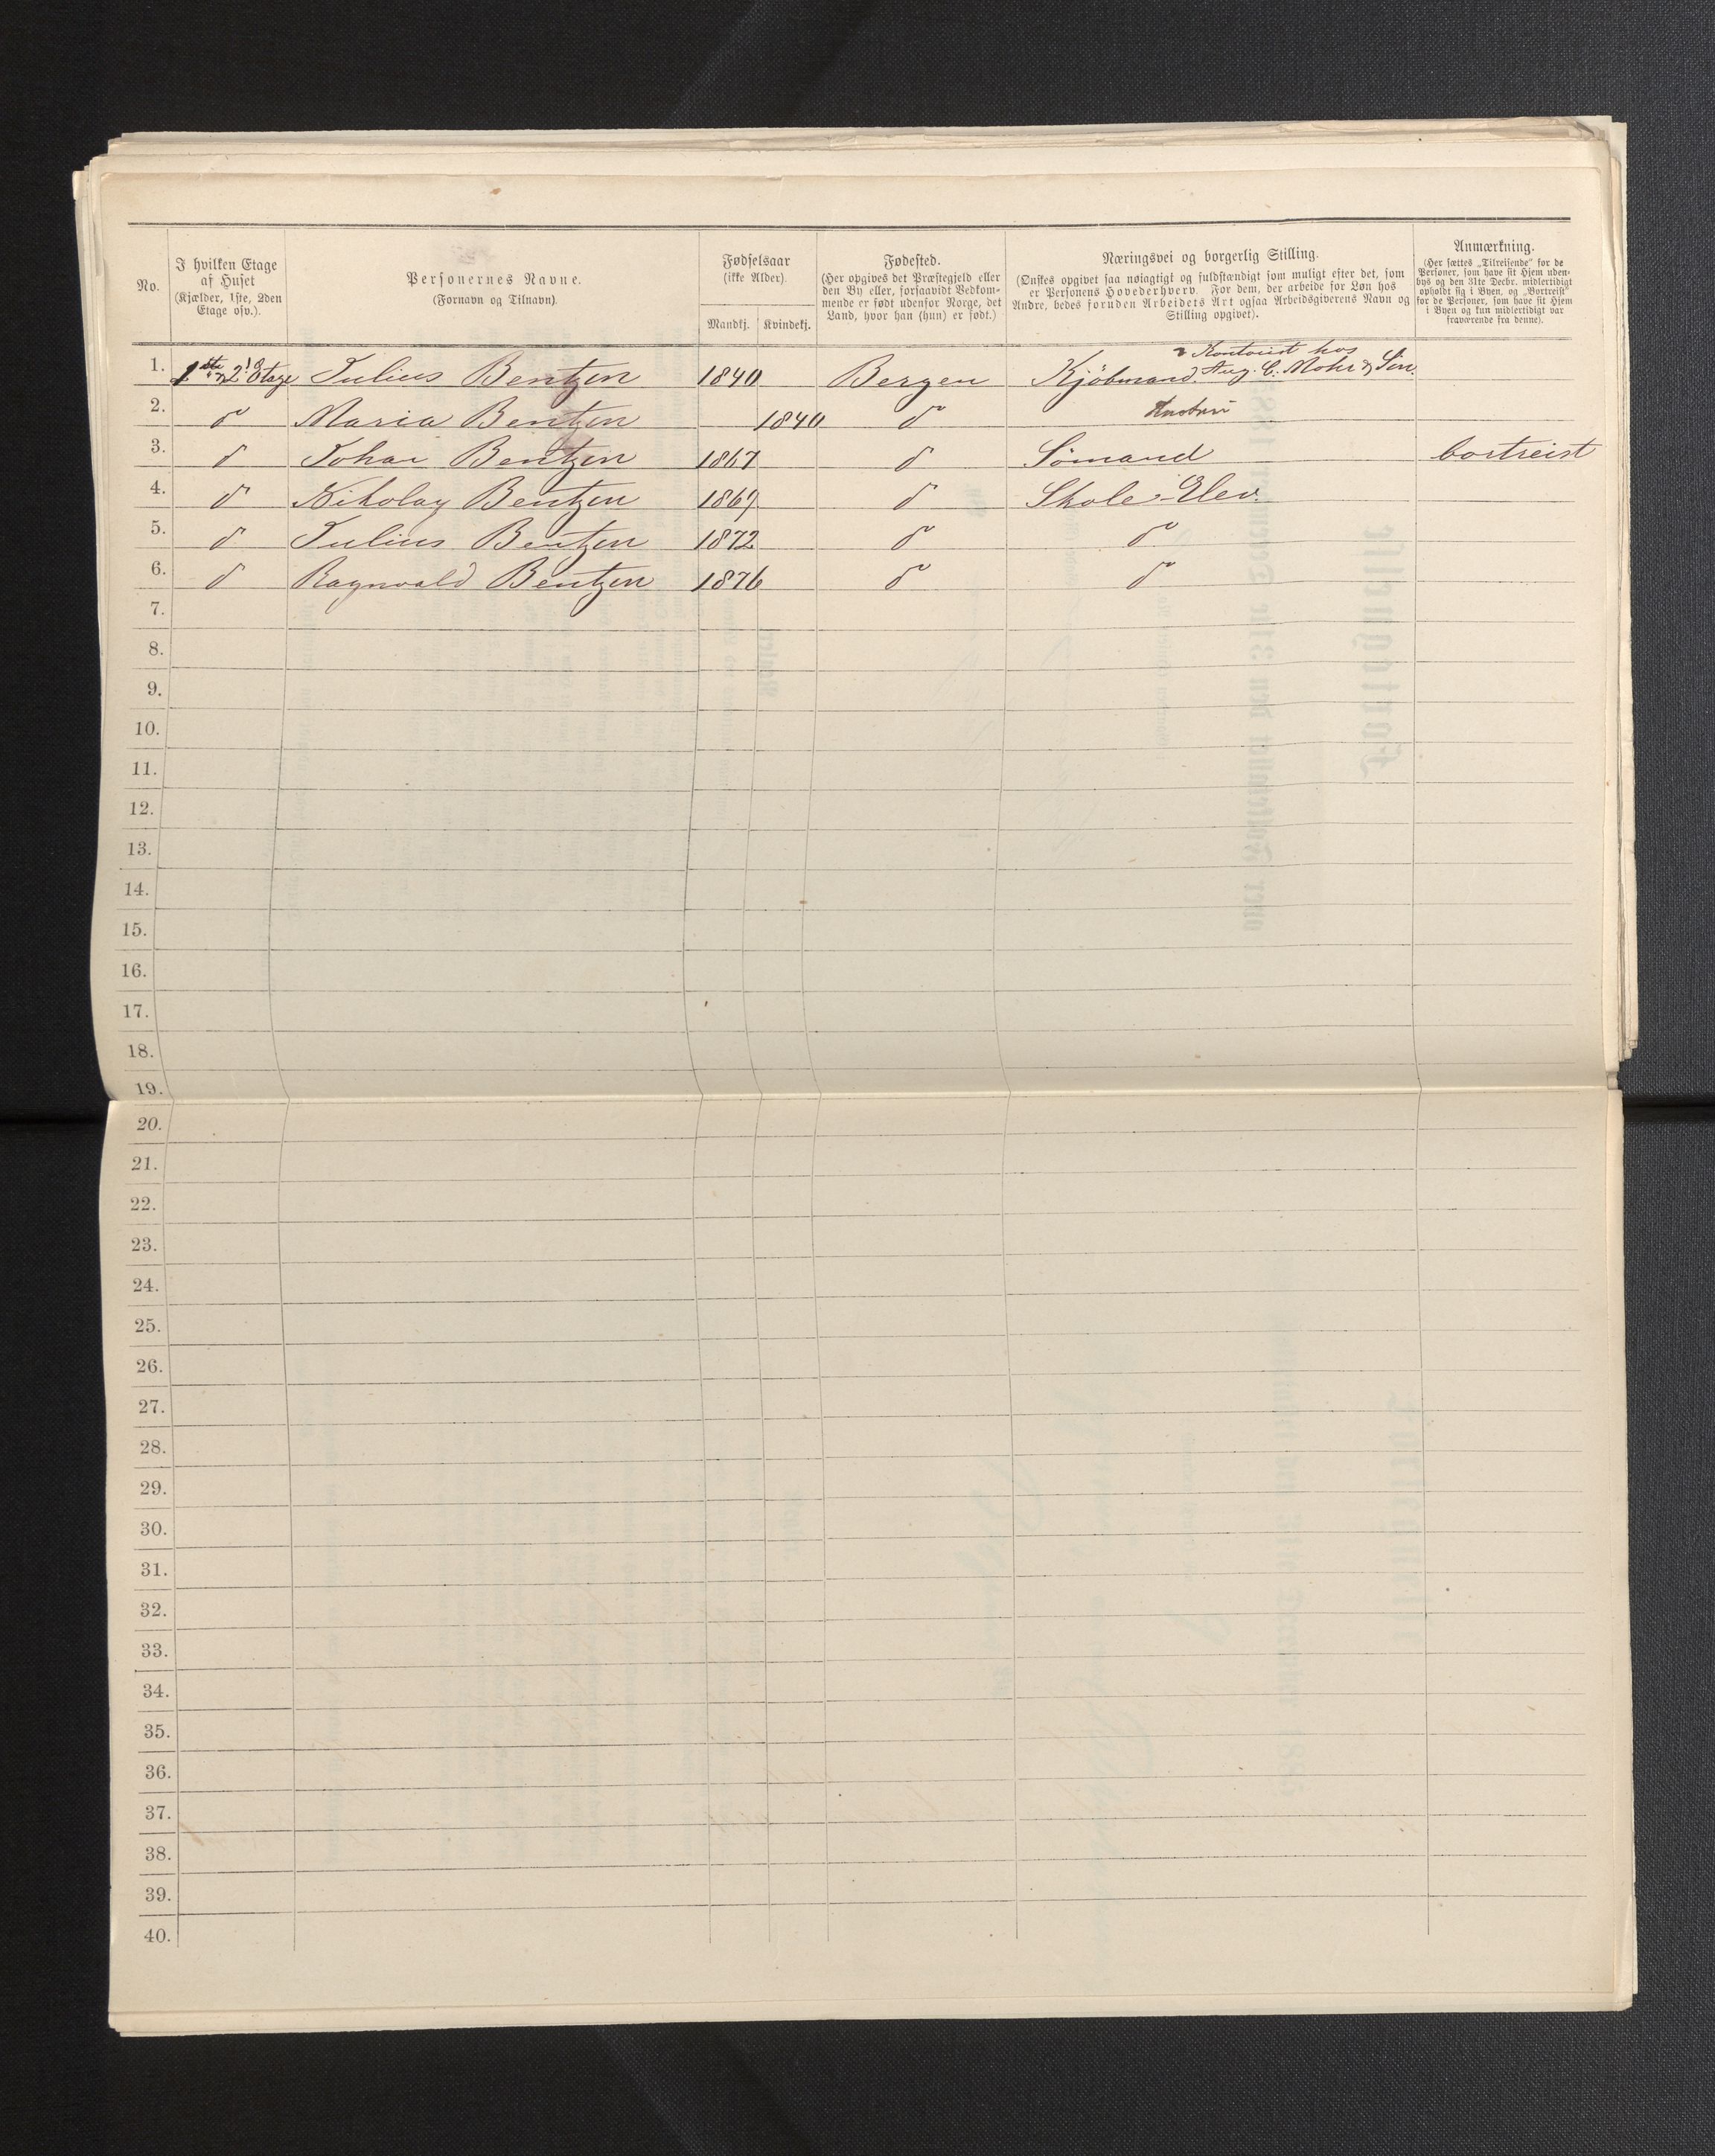 No.
I hvilken Etage af Huset (Kjælder, 1ste, 2den Etage osv.).
Personernes Navne. (Fornavn og Tilnavn).
Fødselsaar (ikke Alder).
Mandkj. Kvindekj.
Fødested. (Her opgives det Præstegjeld eller den By eller, forsaavidt Vedkommende er født udenfor Norge, det Land, hvor han (hun) er født.)
Næringsvei og borgerlig Stilling. (Ønskes opgivet saa nøiagtigt og fuldstændigt som muligt efter det, som er Personens Hovederhverv. For dem, der arbeide for Løn hos Andre, bedes foruden Arbeidets Art ogsaa Arbeidsgiverens Navn og Stilling opgivet).
Anmærkning. (Her sættes „Tilreisende" for de Personer, som have sit Hjem udenbys og den 31te Decbr. midlertidigt opholdt sig i Byen, og „Bortreist" for de Personer, som have sit Hjem i Byen og kun midlertidigt var fraværende fra denne).
1. 1ste 2. Etage Julius Bentzen 1840 Bergen Kjöbmand. Kontorist hos Aug. C. Mohr & Sön.
2. d Maria Bentzen 1840 d Hustru
3. d Johan Bentzen 1867 d Sömand bortreist
4. d Nikolay Bentzen 1869 d Skole-Elev.
5. d Julius Bentzen 1872 d d
6. d Ragnvald Bentzen 1876 d d
7.
8.
9.
10.
11.
12.
13.
14.
15.
16.
17.
18.
19.
20.
21.
22.
23.
24.
25.
26.
27.
28.
29.
30.
31.
32.
33.
34.
35.
36.
37.
38.
39.
40.